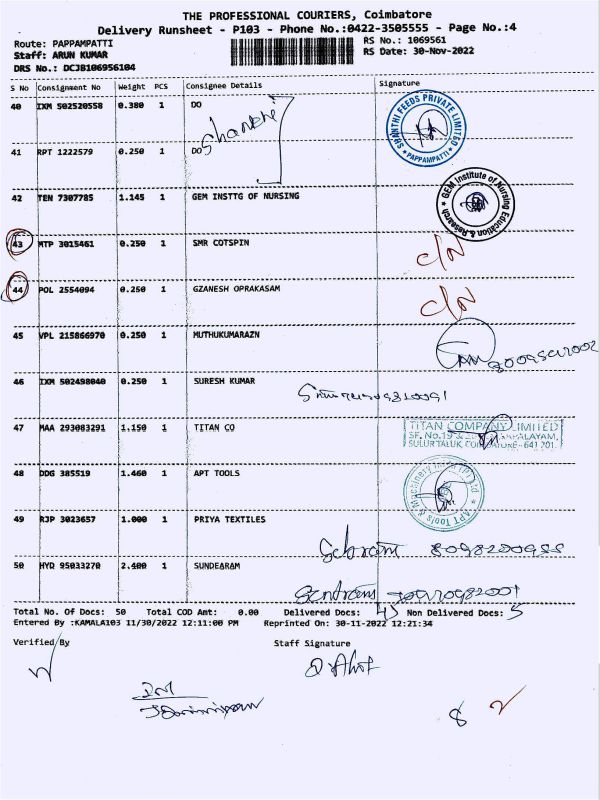 THE PROFESSIONAL COURIERS, Coimbatore
Delivery Runsheet - P103 - Phone No.:0422-3505555 - Page No.:4
Route: PAPPAMPATTI
RS No.: 1069561
Staff: ARUN KUMAR
RS Date: 30-Nov-2022
DRS No.: DCJB106956104
S No Consignment No Weight PCS Consignee Details Signature
40 IXM 502520558 0.380 1 DO
Shanthi
SHANTHI FEEDS PRIVATE LIMITED * PAPPAMPATTI *
41 RPT 1222579 0.250 1 DO
42 TEN 7307785 1.145 1 GEM INSTTG OF NURSING
GEM Institute of Nursing Education & Research *
43 MTP 3015461 0.250 1 SMR COTSPIN
44 POL 2554094 0.250 1 GZANESH OPRAKASAM
45 VPL 215866970 0.250 1 MUTHUKUMARAZN
46 IXM 502498040 0.250 1 SURESH KUMAR
47 MAA 293083291 1.150 1 TITAN CO
TITAN COMPANY LIMITED
SF. No.19
SULUR TALUK, -641 201.
48 DDG 385519 1.460 1 APT TOOLS
APT Tools & Machinery
49 RJP 3023657 1.000 1 PRIYA TEXTILES
50 HYD 95033270 2.400 1 SUNDEARAM
Total No. Of Docs: 50 Total COD Amt: 0.00 Delivered Docs: Non Delivered Docs: 5
Entered By :KAMALA103 11/30/2022 12:11:00 PM Reprinted On: 30-11-2022 12:21:34
Verified By Staff Signature
8 2